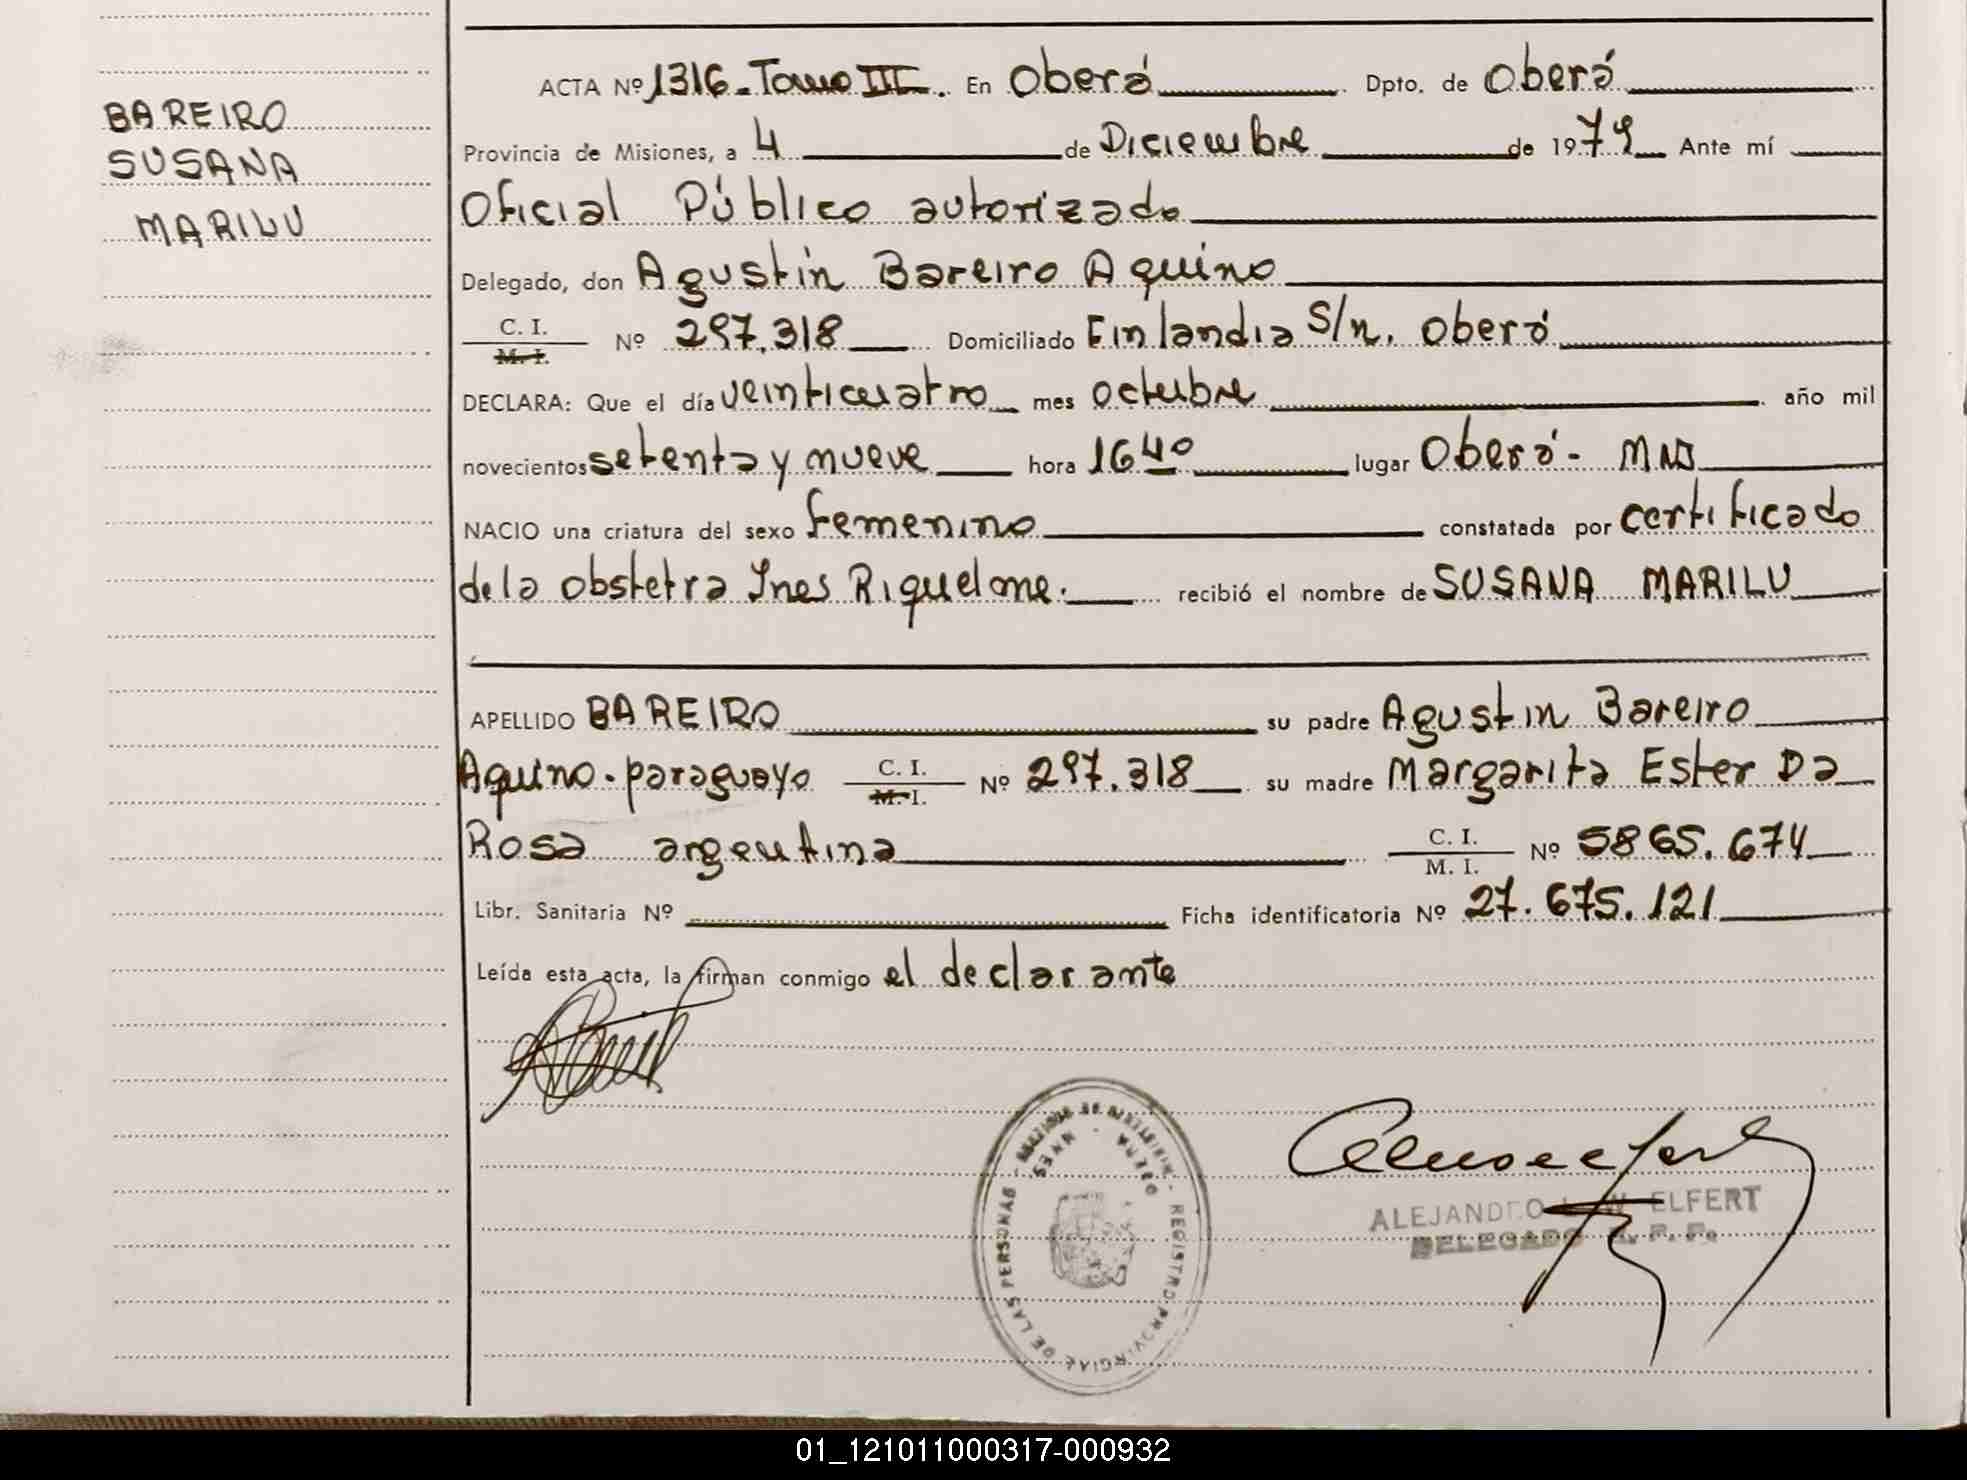 BAREIRO
SUSANA
MARILU
ACTA Nº 1316-Tomo III. En Oberá Dpto. de Oberá
Provincia de Misiones, a 4 de Diciembre de 1979 Ante mí
Oficial Público autorizado
Delegado, don Agustín Bareiro Aquino
C. I.
M. I. Nº 297.318 Domiciliado Finlandia S/n. Oberá
DECLARA: Que el día veinticuatro mes octubre año mil
novecientos setenta y nueve hora 16 40 lugar Oberá - Mns
NACIO una criatura del sexo femenino constatada por certificado
de la obstetra Ines Riquelme. recibió el nombre de SUSANA MARILU
APELLIDO BAREIRO su padre Agustin Bareiro
Aquino - paraguayo C. I. M. I. Nº 297.318 su madre Margarita Ester Da
Rosa argentina C. I. M. I. Nº 5865.674
Libr. Sanitaria Nº Ficha identificatoria Nº 27.675.121
Leída esta acta, la firman conmigo el declarante
REGISTRO PROVINCIAL DE LAS PERSONAS
OBERA - MNES
ALEJANDRO L. W. ELFERT
DELEGADO R. P. P.
01_121011000317-000932